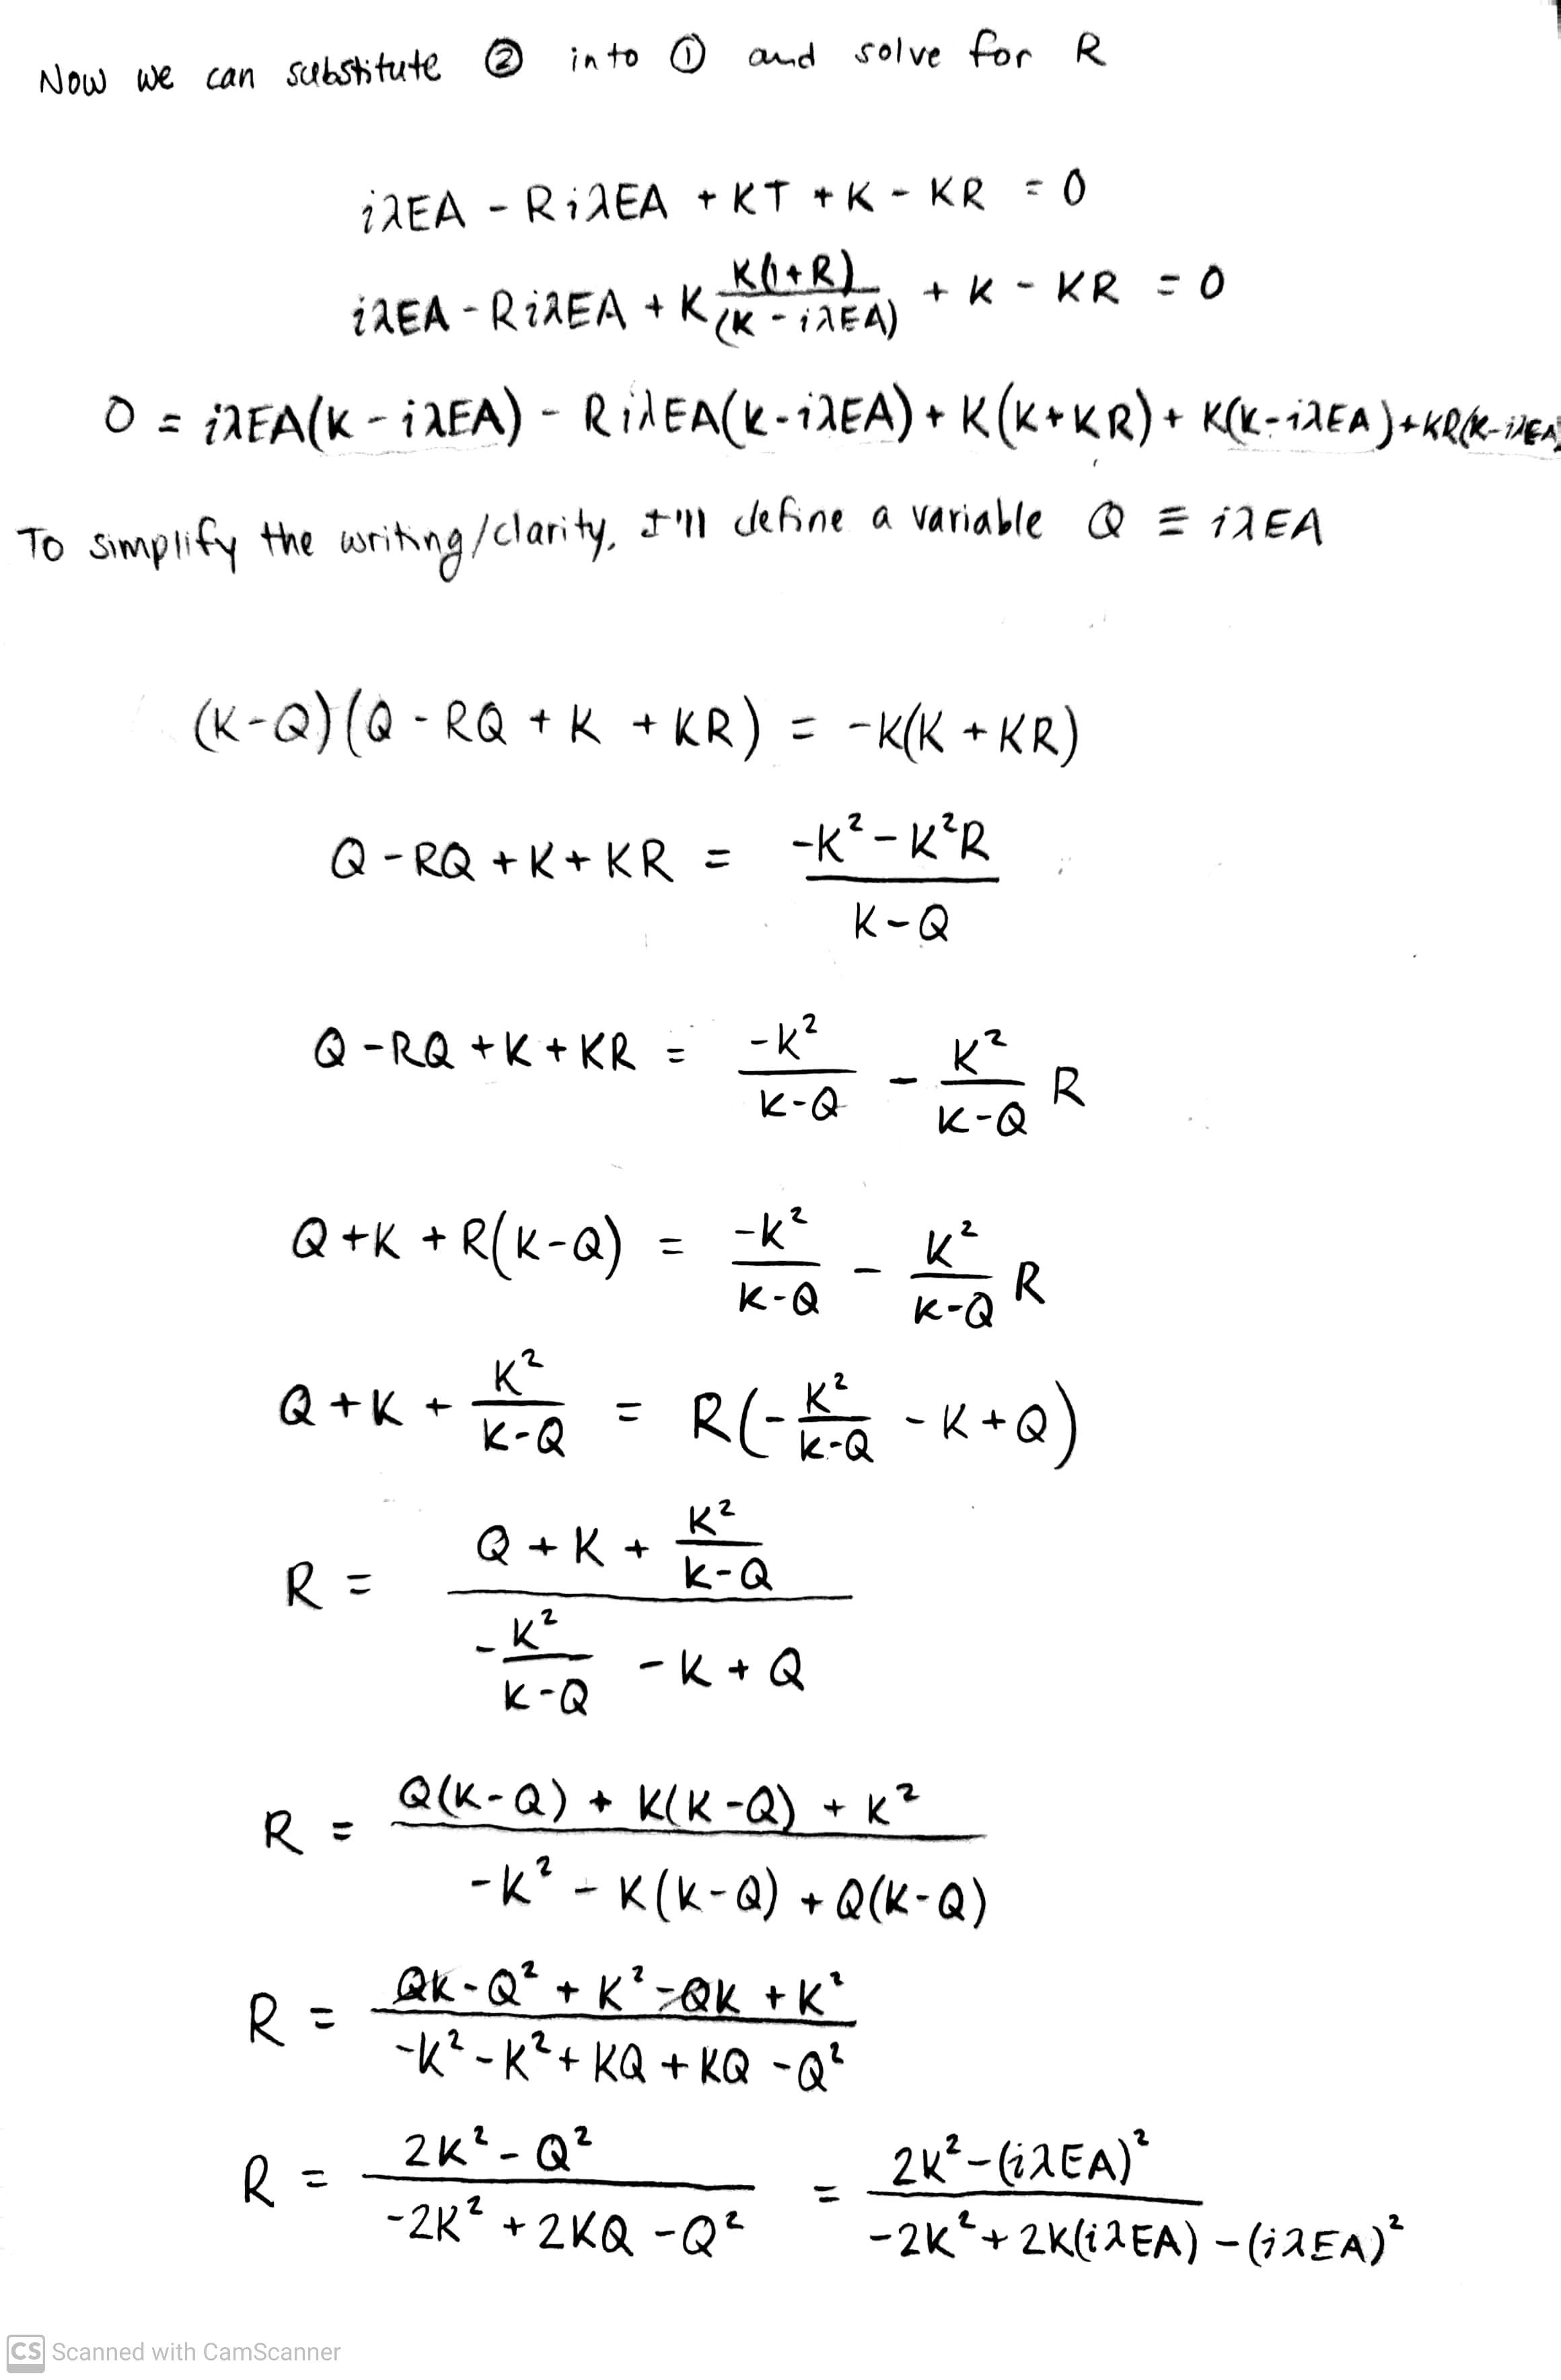 Now we can substitute ② into ① and solve for R
iλEA - RiλEA + KT + K - KR = 0
iλEA - RiλEA + K K(1+R)/(K - iλEA) + K - KR = 0
0 = iλEA(K - iλEA) - RiλEA(K - iλEA) + K(K + KR) + K(K - iλEA) + KR(K - iλEA)
To simplify the writing/clarity, I'll define a variable Q ≡ iλEA
(K-Q)(Q - RQ + K + KR) = -K(K + KR)
Q - RQ + K + KR = (-K² - K²R)/(K-Q)
Q - RQ + K + KR = -K²/(K-Q) - K²/(K-Q) R
Q + K + R(K-Q) = -K²/(K-Q) - K²/(K-Q) R
Q + K + K²/(K-Q) = R(-K²/(K-Q) - K + Q)
R = (Q + K + K²/(K-Q))/(-K²/(K-Q) - K + Q)
R = (Q(K-Q) + K(K-Q) + K²)/(-K² - K(K-Q) + Q(K-Q))
R = (QK - Q² + K² - QK + K²)/(-K² - K² + KQ + KQ - Q²)
R = (2K² - Q²)/(-2K² + 2KQ - Q²) = (2K² - (iλEA)²)/(-2K² + 2K(iλEA) - (iλEA)²)
CS Scanned with CamScanner